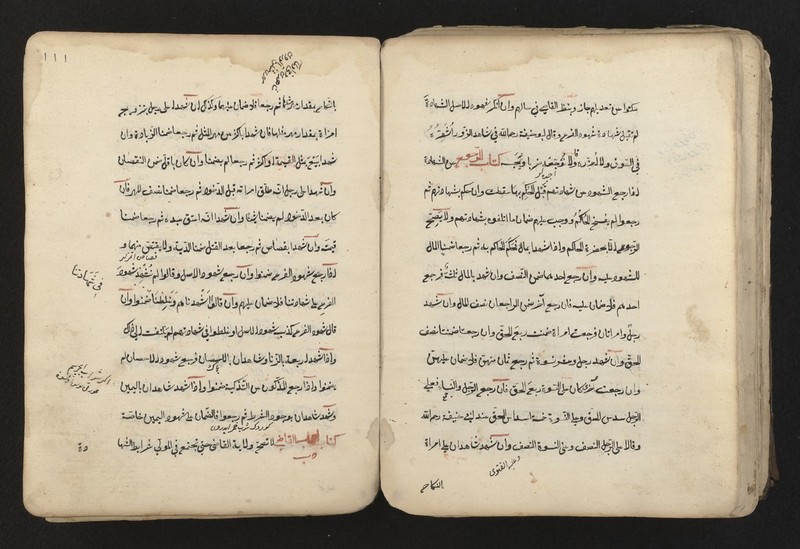 سئلوا من تعديلهم جاز وينظر القاضي في حالهم وان انكر شهود الاصل الشهادة
لم تقبل شهادة شهود الفرع وقال ابو حنيفة رحمه الله في شاهد الزور اشهره
في السوق ولا اعزره وقالا نوجعه ضربا ونحبسه كتاب الرجوع عن الشهادة
اذا رجع الشهود عن شهادتهم قبل الحكم بها سقطت وان حكم بشهادتهم ثم
رجعوا لم يفسخ الحكم ووجب عليهم ضمان ما اتلفوه بشهادتهم ولا يصح
الرجوع الا بحضرة الحاكم واذا شهدا بمال فحكم الحاكم به ثم رجعا ضمنا المال
للشهود عليه وان رجع احدهما ضمن النصف وان شهد بالمال ثلثة فرجع
احدهم فلا ضمان عليه فان رجع آخر ضمن الراجعان نصف المال وان شهد
رجل وامراتان فرجعت امراة ضمنت ربع الحق وان رجعتا ضمنتا نصف
الحق وان شهد رجل وعشر نسوة ثم رجع ثمان منهن فلا ضمان عليهن
وان رجعت اخرى كان على النسوة ربع الحق فان رجع الرجل والنساء فعلى
الرجل سدس الحق وعلى النسوة خمسة اسداس الحق عند ابي حنيفة رحمه الله
وقالا على الرجل النصف وعلى النسوة النصف وان شهد شاهدان على امراة
وعليه الفتوى
بالنكاح
١١١
بالنكاح بمقدار مهر مثلها ثم رجعا فلا ضمان عليهما وكذلك ان شهدا على رجل بتزويج
امراة بمقدار مهر مثلها فان شهدا باكثر من مهر المثل ثم رجعا ضمنا الزيادة وان
شهدا ببيع بمثل القيمة او اكثر ثم رجعا لم يضمنا وان كان باقل ضمنا النقصان
وان شهدا على رجل انه طلق امراته قبل الدخول ثم رجعا ضمنا نصف المهر فان
كان بعد الدخول لم يضمنا وان شهدا انه اعتق عبده ثم رجعا ضمنا
قيمته وان شهدا بقصاص ثم رجعا بعد القتل ضمنا الدية ولا يقتص منهما و
اذا رجع شهود الفرع ضمنوا وان رجع شهود الاصل وقالوا لم نشهد شهود
في شهادتنا
الفرع على شهادتنا فلا ضمان عليهم وان قالوا اشهدناهم وغلطنا ضمنوا وان
قال شهود الفرع كذب شهود الاصل او غلطوا في شهادتهم لم يلتفت الى ذلك
واذا شهد اربعة بالزنا وشاهدان بالاحصان فرجع شهود الاحصان لم
يضمنوا واذا رجع المزكون عن التزكية ضمنوا واذا شهد شاهدان باليمين
وشهد شاهدان بوجود الشرط ثم رجعوا فالضمان على شهود اليمين خاصة
كتاب ادب القاضي لا تصح ولاية القاضي حتى تجتمع في المولى شرايط الشها
دة